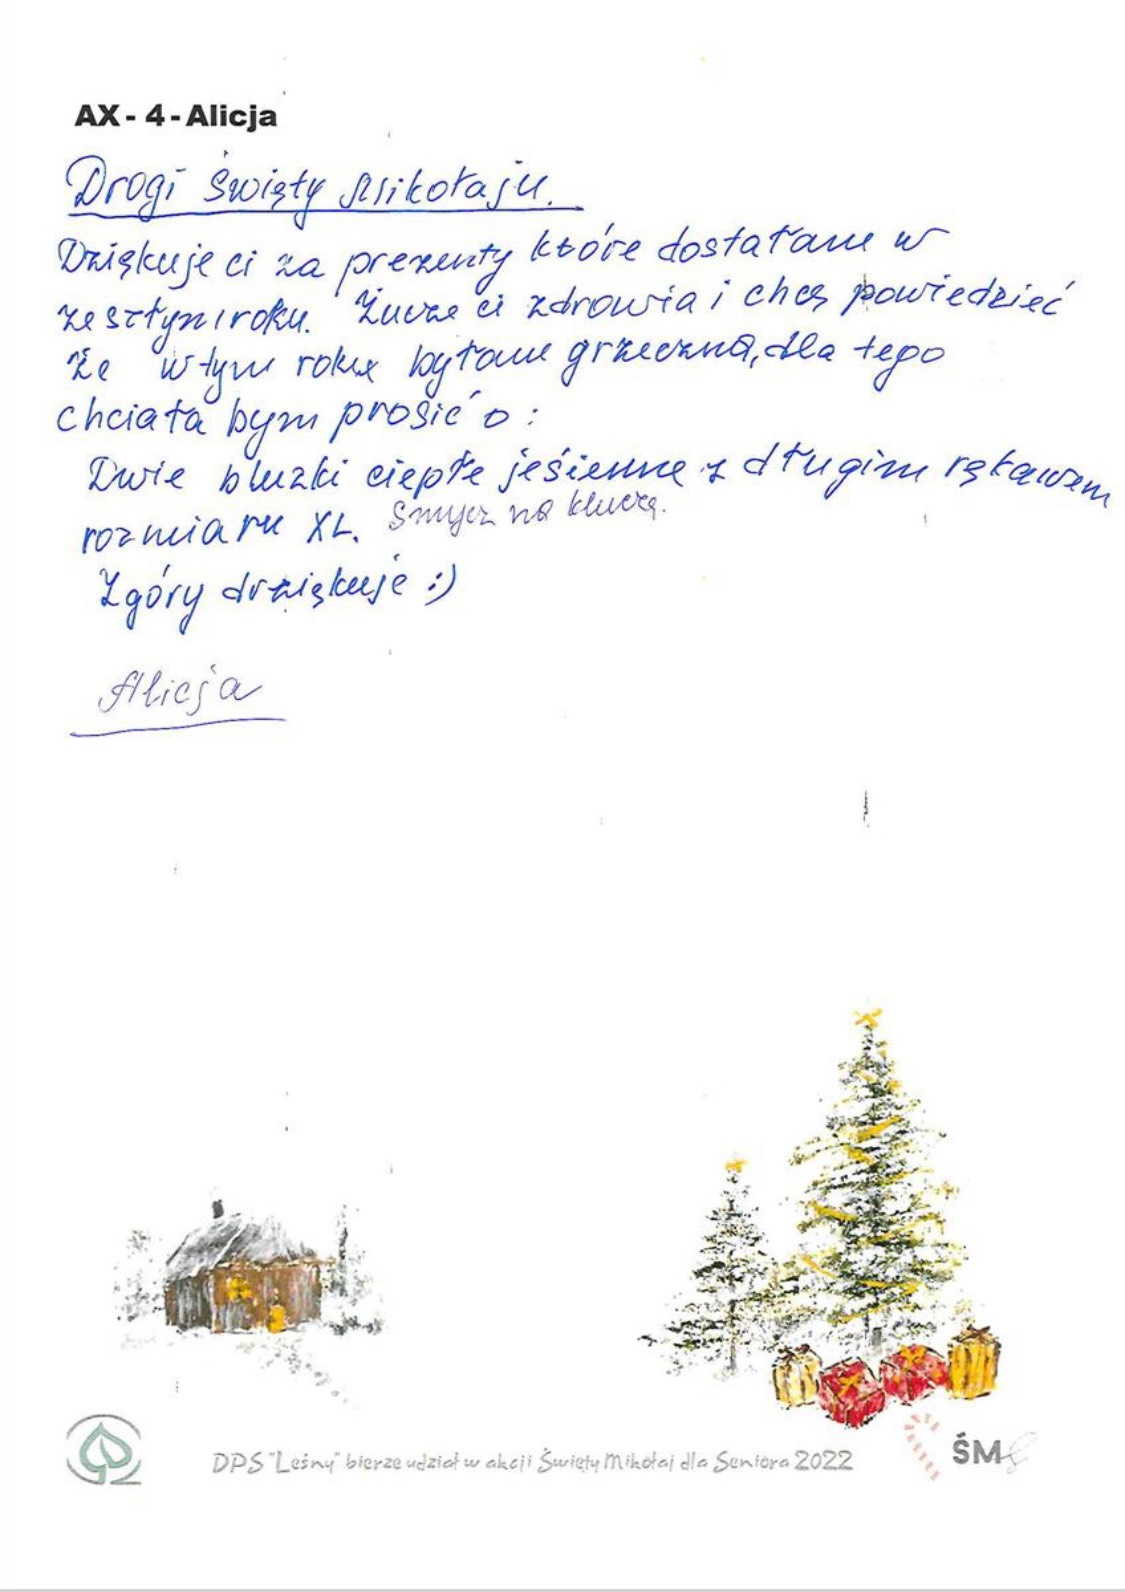 AX - 4 - Alicja
Drogi Święty Mikołaju.
Dziękuje ci za prezenty które dostałam w
zesztymroku. Życze ci zdrowia i chcę powiedzieć
że wtym roku byłam grzeczna, dla tego
chciała bym prosić o:
Dwie bluzki ciepłe jesienne z długim rękawem
rozmiaru XL. Smycz na klucze.
Zgóry dziękuje :)
Alicja
DPS "Leśny" bierze udział w akcji Święty Mikołaj dla Seniora 2022
ŚM